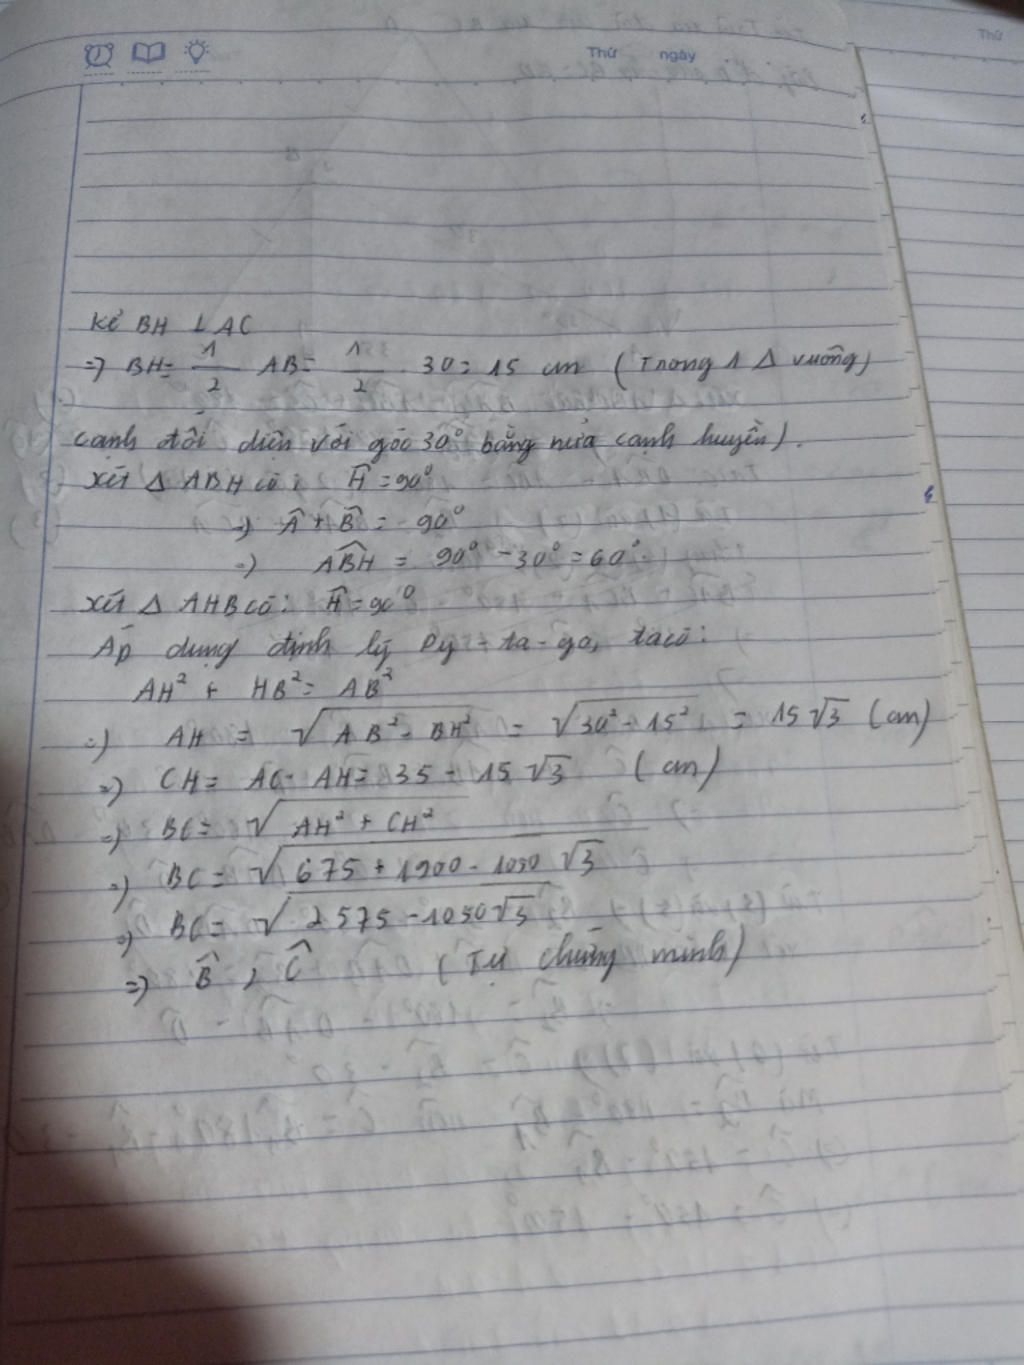 Thứ ngày
Thứ
Kẻ BH ⊥ AC
=> BH = 1/2 AB = 1/2 . 30 = 15 cm ( Trong 1 Δ vuông
cạnh đối diện với góc 30° bằng nửa cạnh huyền).
Xét Δ ABH có : Ĥ = 90°
=> Â + B̂ = 90°
=> ABH = 90° - 30° = 60°
Xét Δ AHB có : Ĥ = 90°
Áp dụng định lý Py - ta - go, ta có :
AH² + HB² = AB²
=> AH = √(AB² - BH²) = √(30² - 15²) = 15√3 (cm)
=> CH = AC - AH = 35 - 15√3 (cm)
=> BC = √(AH² + CH²)
=> BC = √(675 + 1900 - 1050√3)
=> BC = √(2575 - 1050√3)
=> B̂ , Ĉ (Tự chứng minh)